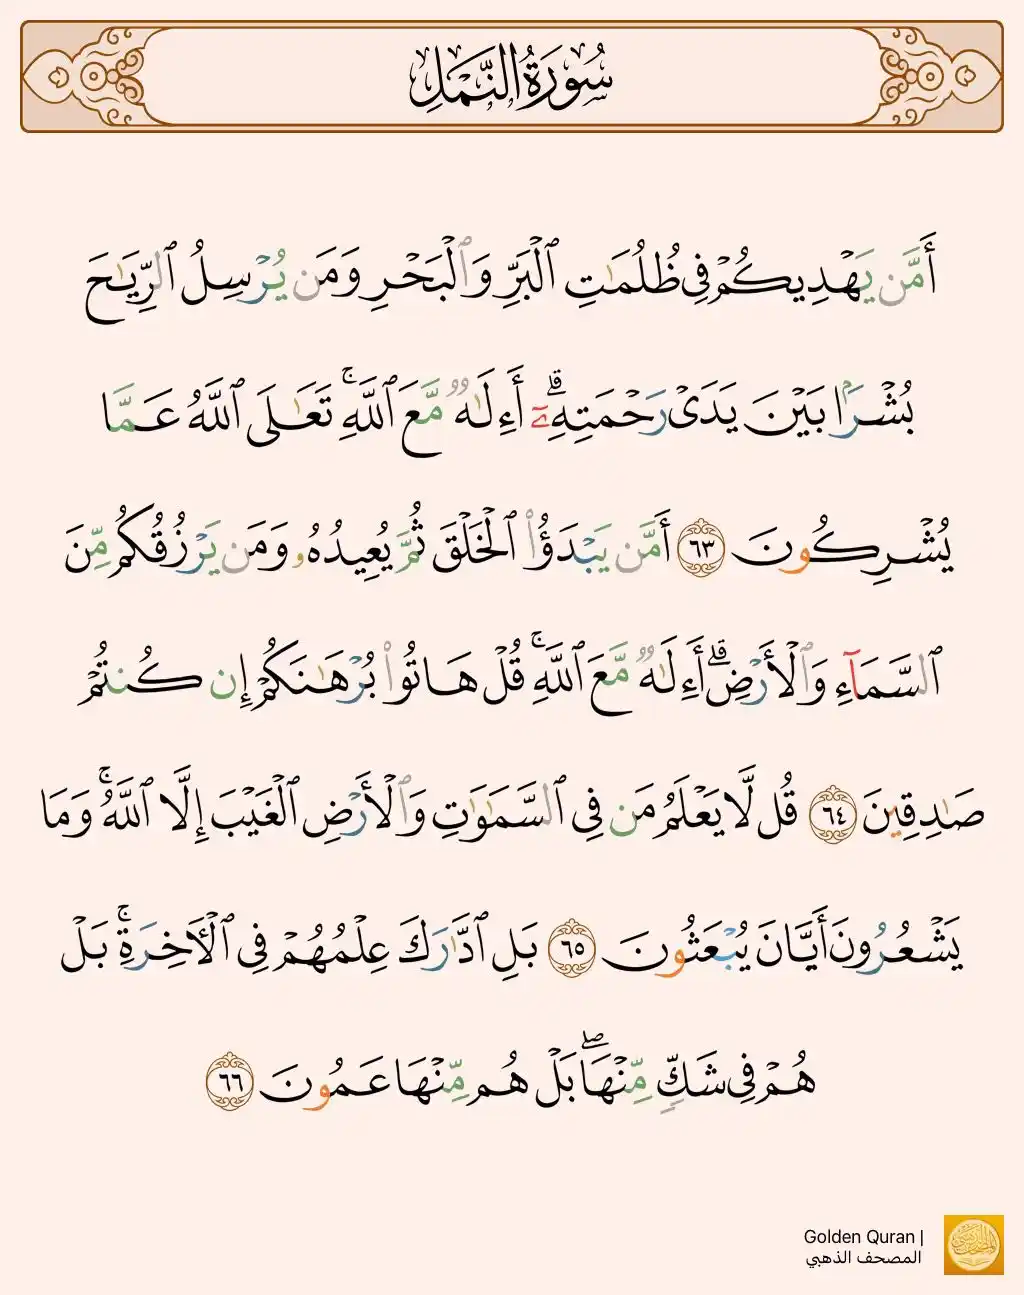 سُورَةُ النَّمۡلِ
أَمَّن يَهۡدِيكُمۡ فِي ظُلُمَٰتِ ٱلۡبَرِّ وَٱلۡبَحۡرِ وَمَن يُرۡسِلُ ٱلرِّيَٰحَ
بُشۡرَۢا بَيۡنَ يَدَيۡ رَحۡمَتِهِۦٓۗ أَءِلَٰهٞ مَّعَ ٱللَّهِۚ تَعَٰلَى ٱللَّهُ عَمَّا
يُشۡرِكُونَ ٦٣ أَمَّن يَبۡدَؤُاْ ٱلۡخَلۡقَ ثُمَّ يُعِيدُهُۥ وَمَن يَرۡزُقُكُم مِّنَ
ٱلسَّمَآءِ وَٱلۡأَرۡضِۗ أَءِلَٰهٞ مَّعَ ٱللَّهِۚ قُلۡ هَاتُواْ بُرۡهَٰنَكُمۡ إِن كُنتُمۡ
صَٰدِقِينَ ٦٤ قُل لَّا يَعۡلَمُ مَن فِي ٱلسَّمَٰوَٰتِ وَٱلۡأَرۡضِ ٱلۡغَيۡبَ إِلَّا ٱللَّهُۚ وَمَا
يَشۡعُرُونَ أَيَّانَ يُبۡعَثُونَ ٦٥ بَلِ ٱدَّٰرَكَ عِلۡمُهُمۡ فِي ٱلۡأٓخِرَةِۚ بَلۡ
هُمۡ فِي شَكّٖ مِّنۡهَاۖ بَلۡ هُم مِّنۡهَا عَمُونَ ٦٦
Golden Quran |
المصحف الذهبي